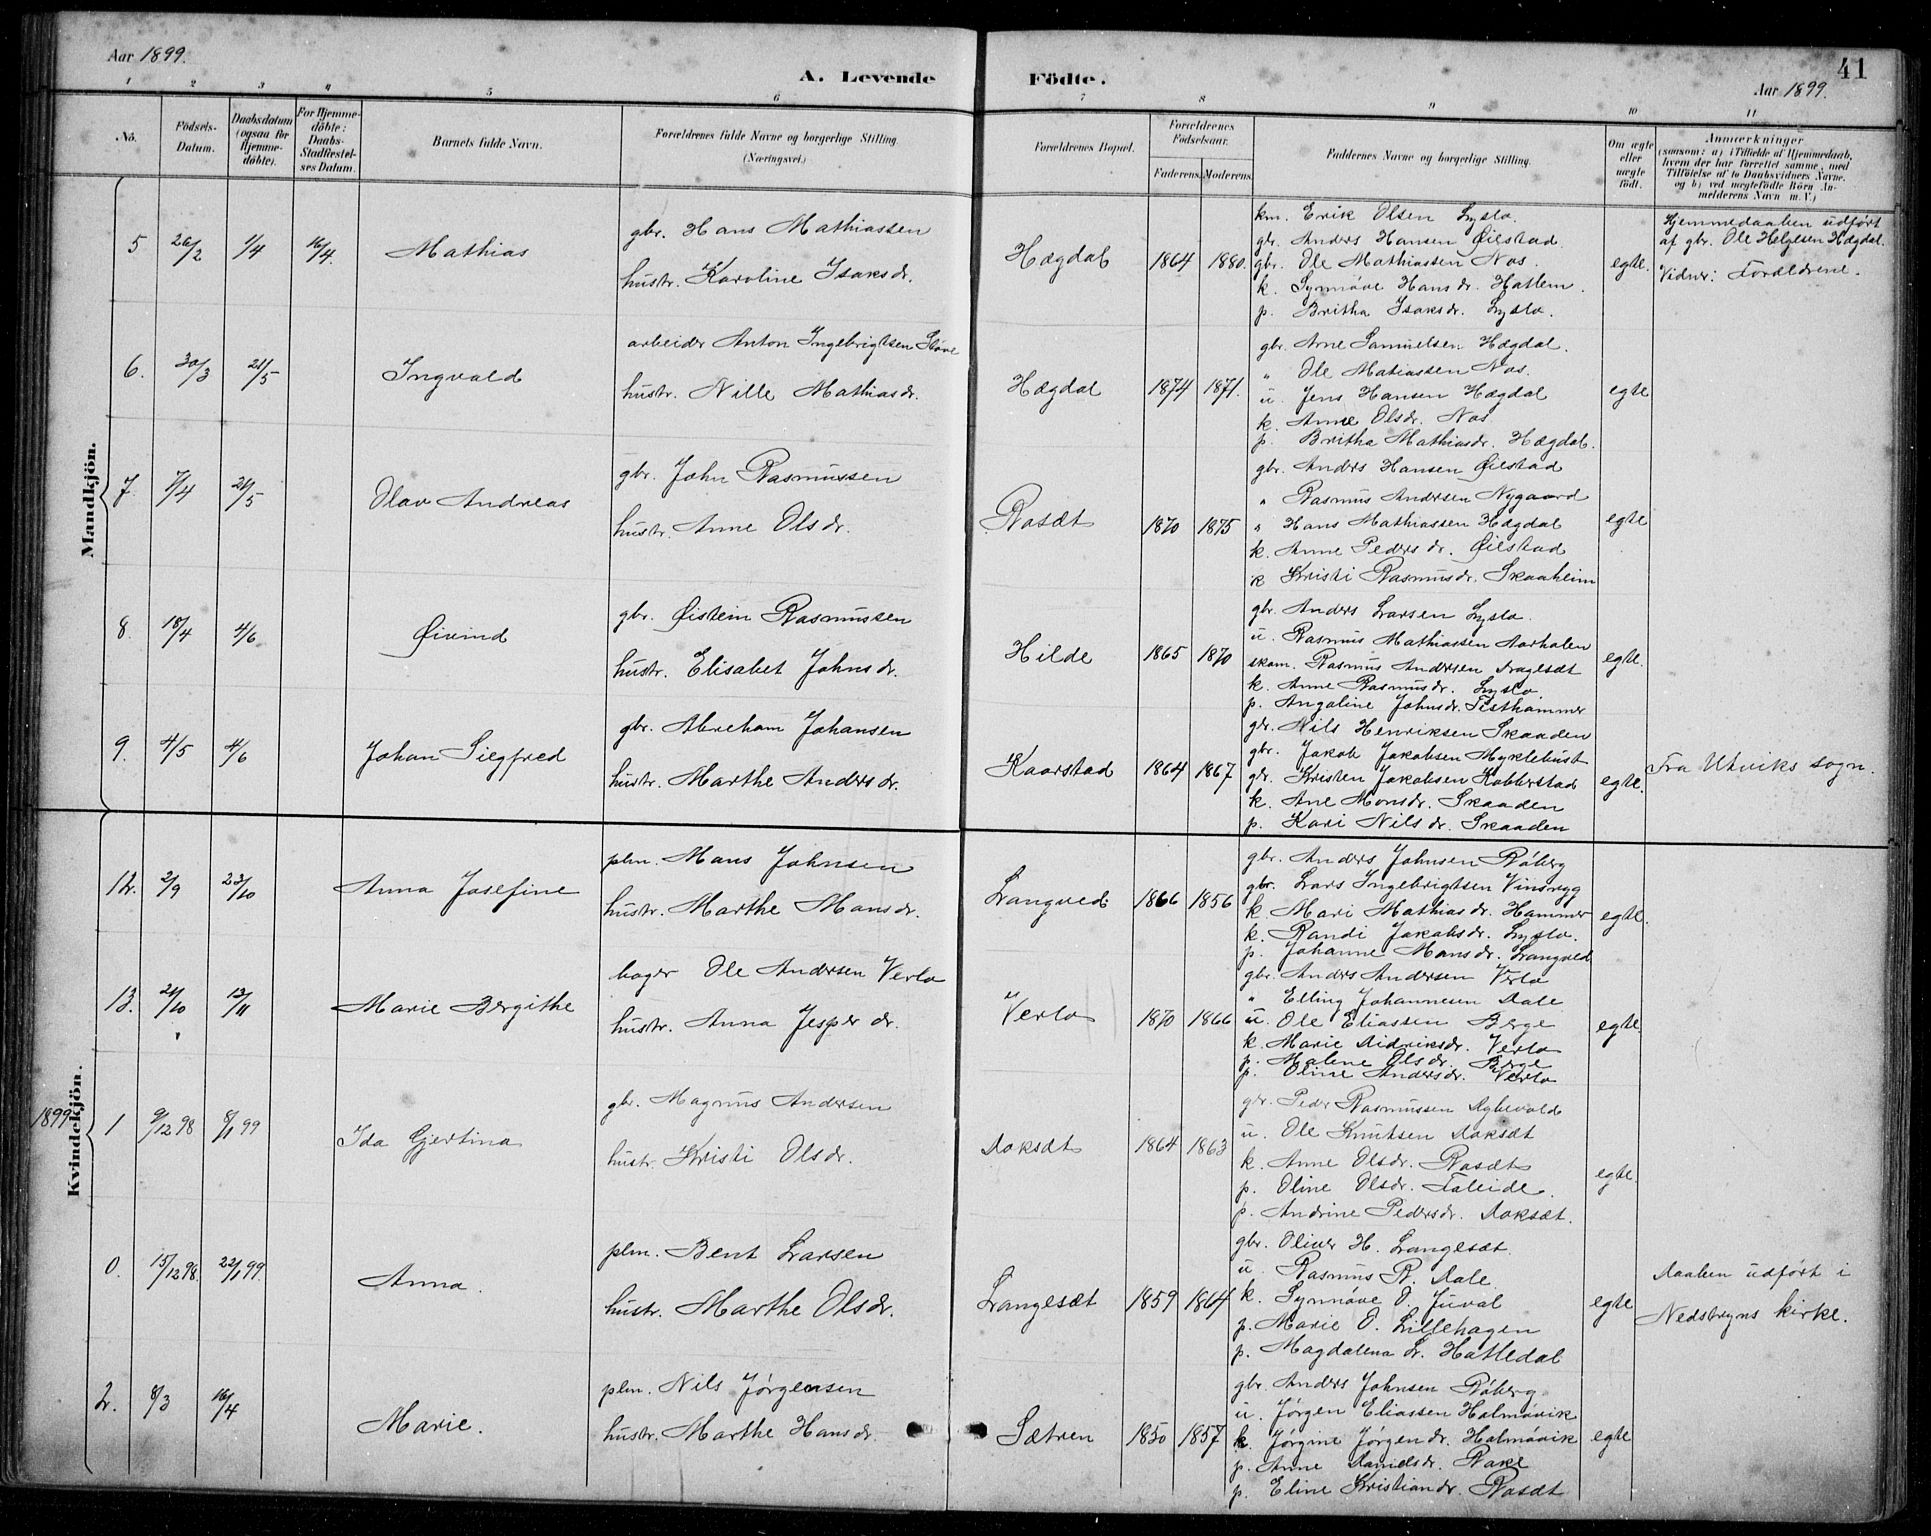 Aar 1899.
A. Levende Födte.
41
Aar 1899.
1 2 3 4 5 6 7 8 9 10 11
No.
Födsels-Datum.
Daabsdatum (ogsaa for Hjemme-döbte).
For Hjemme-döbte: Daabs-Stadfestel-ses Datum.
Barnets fulde Navn.
Forældrenes fulde Navne og borgerlige Stilling. (Næringsvei.)
Forældrenes Bopæl.
Forældrenes Födselsaar.
Faderens. Moderens.
Faddernes Navne og borgerlige Stilling.
Om ægte eller uægte födt.
Anmærkninger (saasom: a) i Tilfælde af Hjemmedaab, hvem der har forrettet samme, med Tilföielse af to Daabsvidners Navne, og b) ved uægtefödte Börn An-melderens Navn m. V.)
Mandkjön.
5 26/2 1/4 16/4. Mathias
gbr. Hans Mathiassen
hustr. Karoline Isaksdr.
Hægdal 1864 1880.
km. Erik Olsen Lyslo.
gbr. Anders Hansen Øilstad.
gbr. Ole Mathiassen Nos.
k. Synnöve Hansdr. Hatlem.
p. Britha Isaksdr. Lyslo.
egte.
Hjemmedaaben udført
af gbr. Ole Helgesen Hægdal.
Vidner: Forældrene.
6. 30/3 21/5 Ingvald
arbeider Anton Ingebrigtsen
hustr. Nille Mathiasdr.
Hægdal 1874 1871.
gbr. Arne Samuelsen Hægdal.
" Ole Matiassen Nos.
u. Jens Hansen Hægdal
k. Anne Olsdr. Nos
p. Britha Mathiasdr. Hægdal.
egte
7 7/4 21/5 Olav Andreas
gbr. John Rasmussen
hustr. Anne Olsdr.
Rosæt 1870 1875
gbr. Anders Hansen Øilstad
" Rasmus Andersen Nygaard
" Hans Mathiassen Hægdal
k. Anne Pedersdr. Øilstad
k Kristi Rasmusdr. Skaaheim
egte
8. 18/4 4/6 Øivind
gbr. Øistein Rasmussen
hustr. Elisabet Johnsdr.
Hilde 1865 1870
gbr. Anders Larsen Lyslo.
u. Rasmus Mathiassen Aarholen
skom. Rasmus Andersen Dragesæt
k. Anne Rasmusdr. Lyslo.
p. Angoline Johnsdr. Festhammer
egte.
9. 4/5 4/6 Johan Siegfred
gbr. Abraham Johansen
hustr. Marthe Andersdr.
Kaarstad 1864 1867
gbr. Nils Henriksen Skaaden
gbr. Jakob Jakobsen Myklebust
gbr. Kristen Jakobsen Kobberstad
k. Ane Monsdr. Skaaden
p. Kari Nilsdr. Skaaden
egte.
Fra Utviks sogn.
Kvindekjön.
12. 2/9 23/10 Anna Josefine
plm. Mons Johnsen
hustr. Marthe Monsdr.
Langved 1866 1856
gbr. Anders Johnsen Röberg
gbr. Lars Ingebrigtsen Vinsryg
k. Mari Mathiasdr. Hammer
k. Randi Jakobsdr. Lyslo.
p. Johanne Monsdr. Langved
egte.
13. 21/10 12/11 Marie Bergithe
bager Ole Andersen Verlo
hustr. Anna Jesperdr.
Verlo 1870 1866
gbr. Anders Andersen Verlo
" Elling Johannesen Dale
u. Ole Eliassen Berge
k. Marie Didriksdr. Verlo
p. Malene Olsdr. Berge
p. Oline Andersdr. Verlo
egte.
1899
1 9/12 98 8/1 99 Ida Gjertina
gbr. Magnus Andersen
hustr. Kristi Olsdr.
Doksæt 1864 1863
gbr. Peder Rasmussen Dybevold
u. Ole Knutsen Doksæt
k. Anne Olsdr. Rosæt
p. Oline Olsdr. Faleide.
p. Andrine Pedersdr. Doksæt.
egte.
0. 15/12 98. 22/1 99. Anna.
plm. Bent Larsen
hustr. Marthe Olsdr.
Langesæt 1859 1864
gbr. Oliver H. Langesæt.
u. Rasmus R. Dale
k. Synnöve O. Juval
p. Marie O. Lillehagen
p. Magdalena Lr. Hatledal
egte
Daaben udført i
Nedstryns kirke.
2. 8/3 16/4 Marie.
plm. Nils Jörgensen
hustr. Marthe Hansdr.
Sætren 1850 1857
gbr. Anders Johnsen Röberg
u. Jörgen Eliassen Holmövik
k. Jörgine Jörgendr. Holmövik
p. Anne Danielsdr. Rake
p. Eline Kristiandr. Rosæt
egte